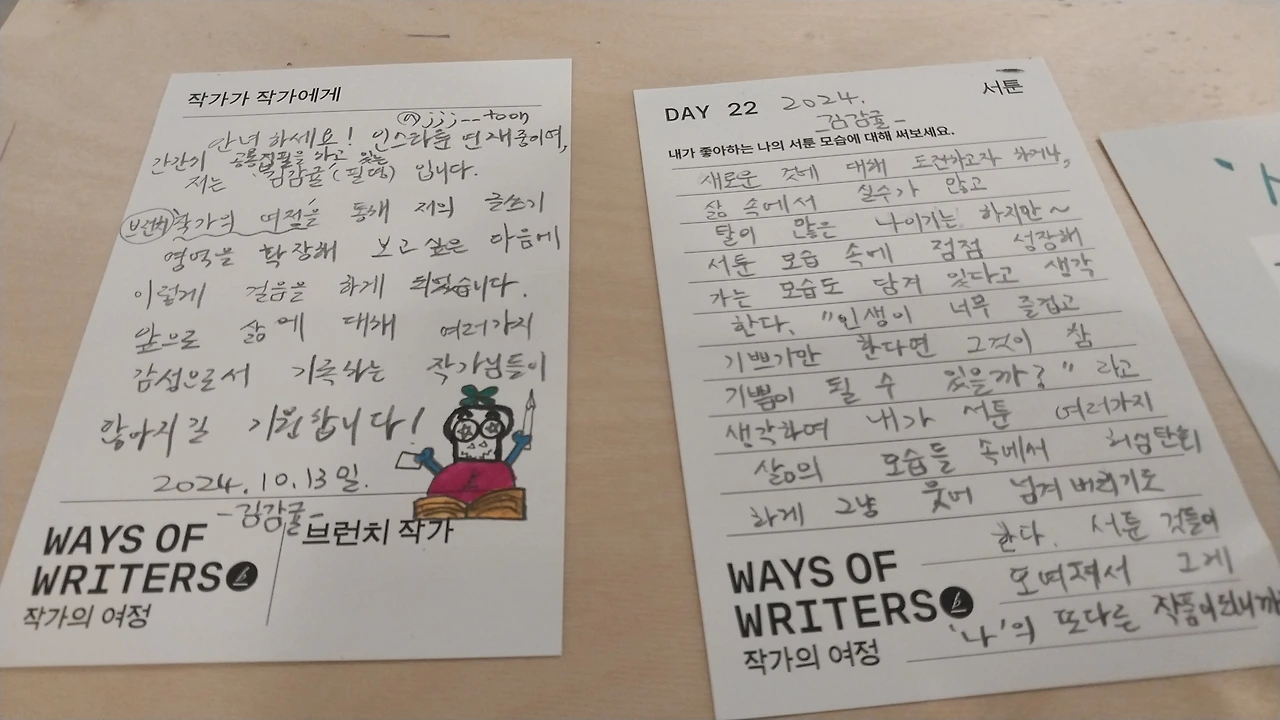 작가가 작가에게
@jjj__toon
안녕하세요! 인스타툰 연재중이며,
간간히 공동집필을 하고 있는
저는 김감귤(필명) 입니다.
브런치 작가의 여정을 통해 저의 글쓰기
영역을 확장해 보고 싶은 마음에
이렇게 걸음을 하게 되었습니다.
앞으로 삶에 대해 여러가지
감성으로서 기록하는 작가님들이
많아지길 기원합니다!
2024.10.13일.
-김감귤-
WAYS OF
WRITERS
작가의 여정
브런치 작가
DAY 22 2024.
서툰
-김감귤-
내가 좋아하는 나의 서툰 모습에 대해 써보세요.
새로운 것에 대해 도전하고자 하거나,
삶 속에서 실수가 많고
탈이 많은 나이기는 하지만~
서툰 모습 속에 점점 성장해
가는 모습도 담겨 있다고 생각
한다. "인생이 너무 즐겁고
기쁘기만 한다면 그것이 참
기쁨이 될 수 있을까?" 라고
생각하여 내가 서툰 여러가지
삶의 모습들 속에서 허심탄회
하게 그냥 웃어 넘겨 버리기도
한다. 서툰 것들이
모여져서 그게
'나'의 또다른 작품이되니까
WAYS OF
WRITERS
작가의 여정